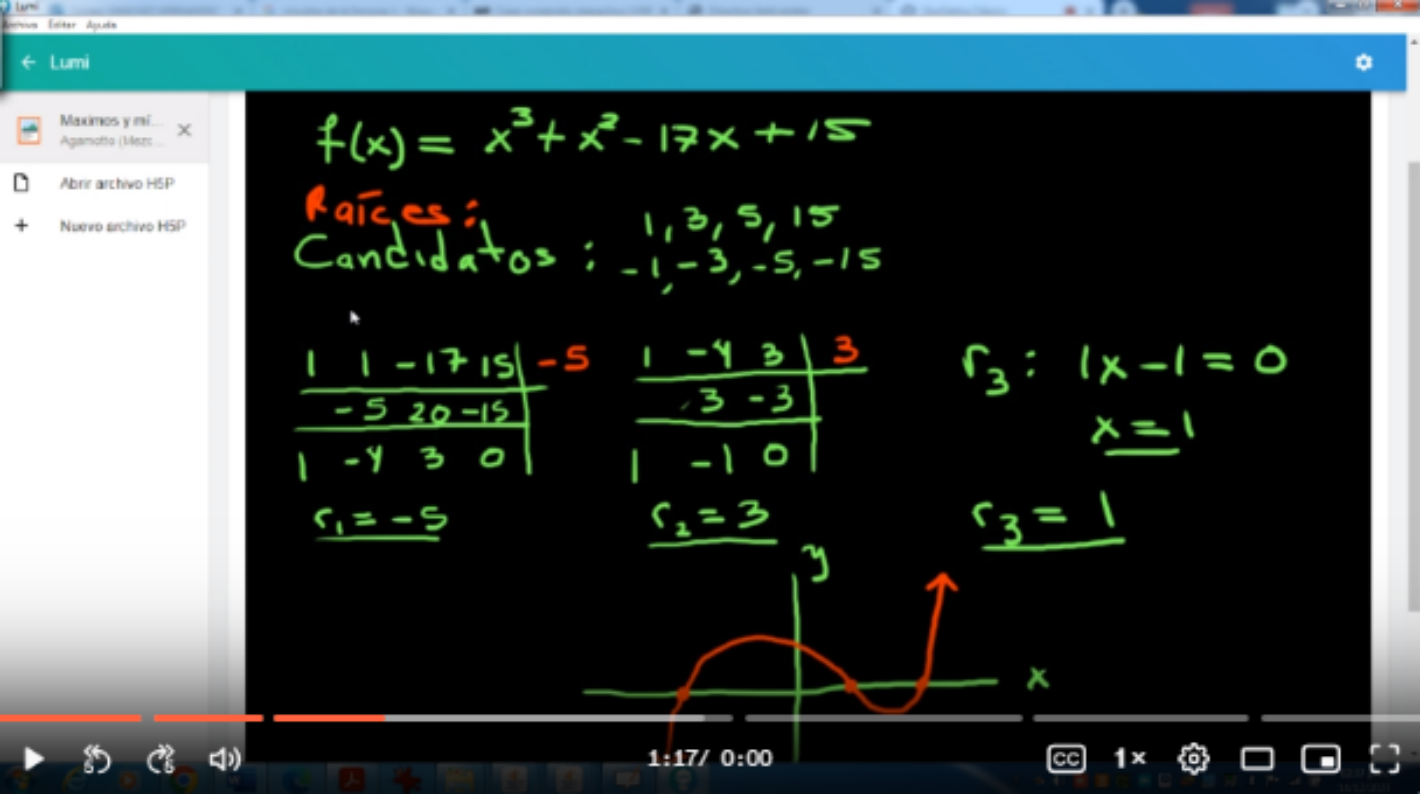 Lumi
Archivo Editar Ayuda
← Lumi
Maximos y mí...
Agamotto (Mezc...
Abrir archivo H5P
+ Nuevo archivo H5P
f(x) = x³ + x² - 17x + 15
Raíces:
Candidatos : 1, 3, 5, 15
-1, -3, -5, -15
1 1 -17 15 | -5
-5 20 -15
1 -4 3 0
r₁ = -5
1 -4 3 | 3
3 -3
1 -1 0
r₂ = 3
r₃ : 1x - 1 = 0
x = 1
r₃ = 1
y
x
5
5
1:17/ 0:00
CC
1×